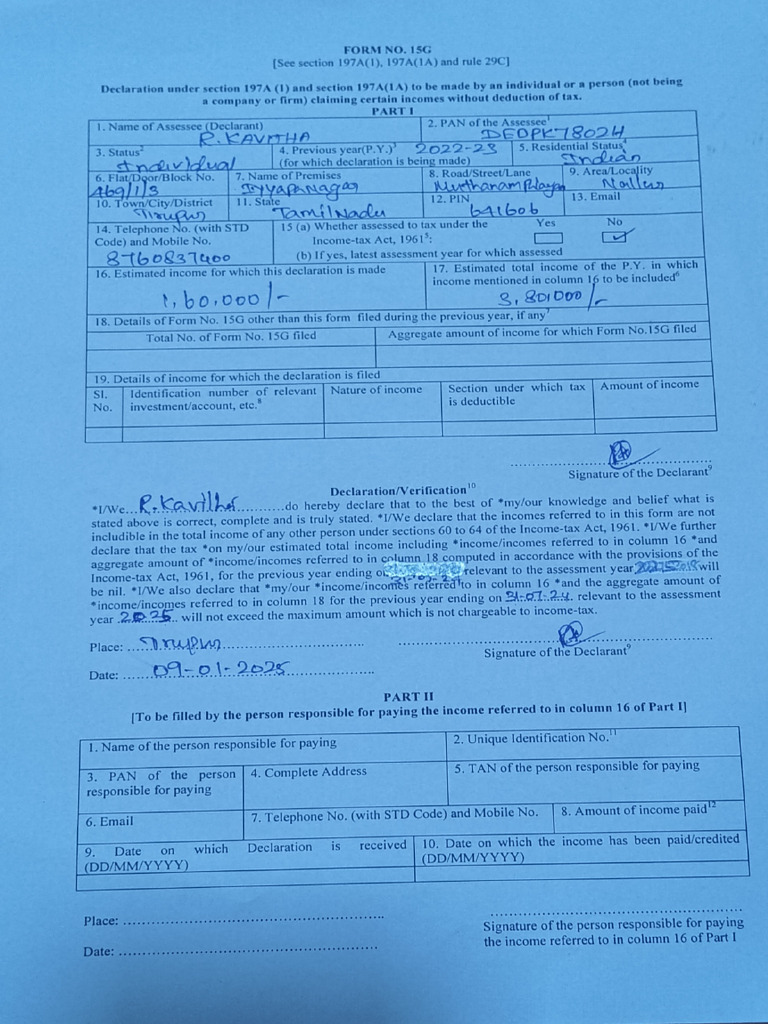 FORM NO. 15G
[See section 197A(1), 197A(1A) and rule 29C]
Declaration under section 197A (1) and section 197A(1A) to be made by an individual or a person (not being
a company or firm) claiming certain incomes without deduction of tax.
PART I
1. Name of Assessee (Declarant) R. KAVITHA
2. PAN of the Assessee¹ DEOPK7802H
3. Status² Individual
4. Previous year(P.Y.)³ 2022-23
(for which declaration is being made)
5. Residential Status⁴ Indian
6. Flat/Door/Block No. 469/1/3
7. Name of Premises Iyyapa Nagar
8. Road/Street/Lane
9. Area/Locality Nallur
10. Town/City/District Tirupur
11. State Tamil Nadu
12. PIN 641606
13. Email
14. Telephone No. (with STD
Code) and Mobile No.
8760837400
15 (a) Whether assessed to tax under the
Income-tax Act, 1961⁵:
Yes No
(b) If yes, latest assessment year for which assessed
16. Estimated income for which this declaration is made
1,60,000/-
17. Estimated total income of the P.Y. in which
income mentioned in column 16 to be included⁶
3,80,000/-
18. Details of Form No. 15G other than this form filed during the previous year, if any⁷
Total No. of Form No. 15G filed
Aggregate amount of income for which Form No.15G filed
19. Details of income for which the declaration is filed
Sl.
No.
Identification number of relevant
investment/account, etc.⁸
Nature of income
Section under which tax
is deductible
Amount of income
Signature of the Declarant⁹
Declaration/Verification¹⁰
*I/We... R. Kavitha ............do hereby declare that to the best of *my/our knowledge and belief what is
stated above is correct, complete and is truly stated. *I/We declare that the incomes referred to in this form are not
includible in the total income of any other person under sections 60 to 64 of the Income-tax Act, 1961. *I/We further
declare that the tax *on my/our estimated total income including *income/incomes referred to in column 16 *and
aggregate amount of *income/incomes referred to in column 18 computed in accordance with the provisions of the
Income-tax Act, 1961, for the previous year ending on relevant to the assessment year will
be nil. *I/We also declare that *my/our *income/incomes referred to in column 16 *and the aggregate amount of
*income/incomes referred to in column 18 for the previous year ending on 31.07.24. relevant to the assessment
year .2025.. will not exceed the maximum amount which is not chargeable to income-tax.
Place: ...Tirupur...
Signature of the Declarant⁹
Date: ...09-01-2025...
PART II
[To be filled by the person responsible for paying the income referred to in column 16 of Part I]
1. Name of the person responsible for paying
2. Unique Identification No.¹¹
3. PAN of the person
responsible for paying
4. Complete Address
5. TAN of the person responsible for paying
6. Email
7. Telephone No. (with STD Code) and Mobile No.
8. Amount of income paid¹²
9. Date on which Declaration is received
(DD/MM/YYYY)
10. Date on which the income has been paid/credited
(DD/MM/YYYY)
Place: ......................................................
Date: ......................................................
Signature of the person responsible for paying
the income referred to in column 16 of Part I